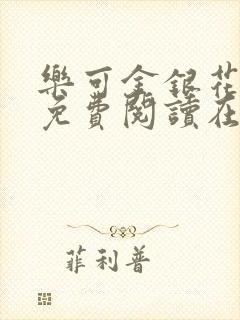 樂可金銀花
免費閱讀在
菲利普